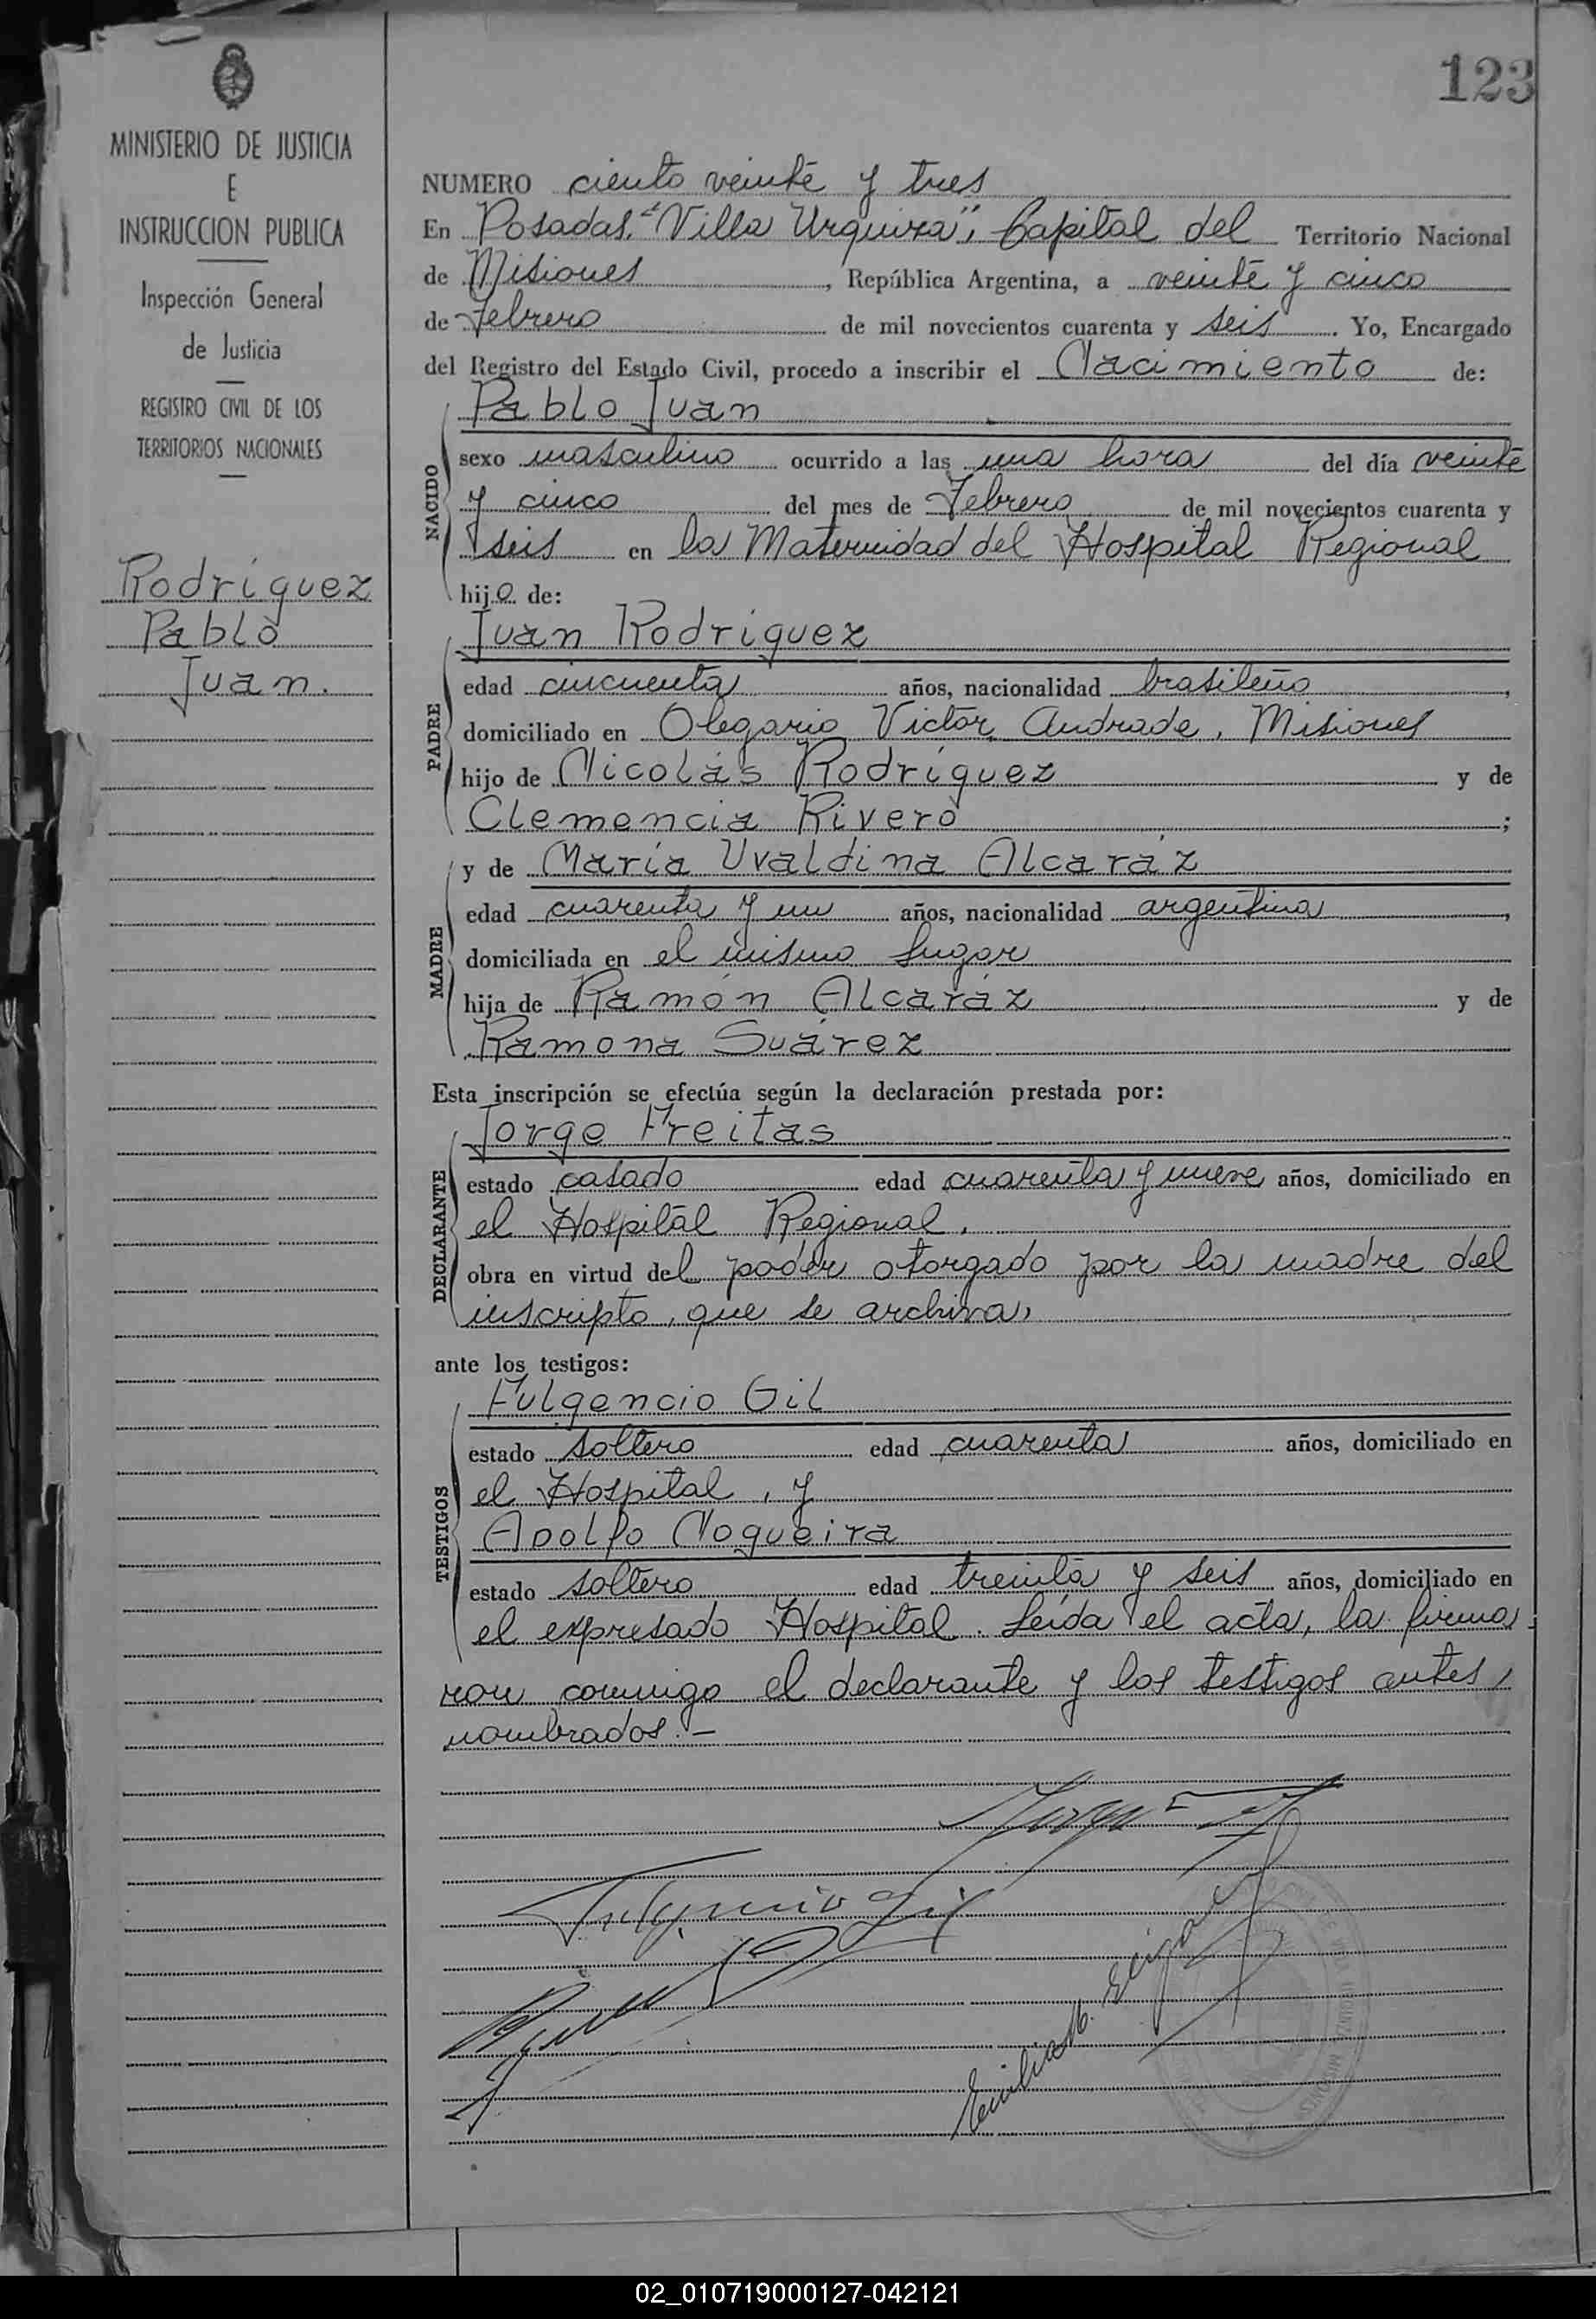 123
MINISTERIO DE JUSTICIA
E
INSTRUCCION PUBLICA
Inspección General
de Justicia
REGISTRO CIVIL DE LOS
TERRITORIOS NACIONALES
Rodríguez
Pablo
Juan.
NUMERO ciento veinte y tres
En Posadas, "Villa Urquiza", Capital del Territorio Nacional
de Misiones, República Argentina, a veinte y cinco
de Febrero de mil novecientos cuarenta y seis. Yo, Encargado
del Registro del Estado Civil, procedo a inscribir el Nacimiento de:
Pablo Juan
NACIDO
sexo masculino ocurrido a las una hora del día veinte
y cinco del mes de Febrero de mil novecientos cuarenta y
seis en la Maternidad del Hospital Regional
hijo de:
Juan Rodríguez
PADRE
edad cincuenta años, nacionalidad brasileño,
domiciliado en Olegario Victor Andrade, Misiones
hijo de Nicolás Rodríguez y de
Clemencia Rivero;
y de María Uvaldina Alcaráz
MADRE
edad cuarenta y un años, nacionalidad argentina,
domiciliada en el mismo lugar
hija de Ramón Alcaráz y de
Ramona Suárez
Esta inscripción se efectúa según la declaración prestada por:
Jorge Freitas
DECLARANTE
estado casado edad cuarenta y nueve años, domiciliado en
el Hospital Regional,
obra en virtud del poder otorgado por la madre del
inscripto, que se archiva,
ante los testigos:
Fulgencio Gil
TESTIGOS
estado soltero edad cuarenta años, domiciliado en
el Hospital, y
Adolfo Nogueira
estado soltero edad treinta y seis años, domiciliado en
el expresado Hospital. Leída el acta, la firma-
ron conmigo el declarante y los testigos antes
nombrados.-
Fulgencio Gil
02_010719000127-042121